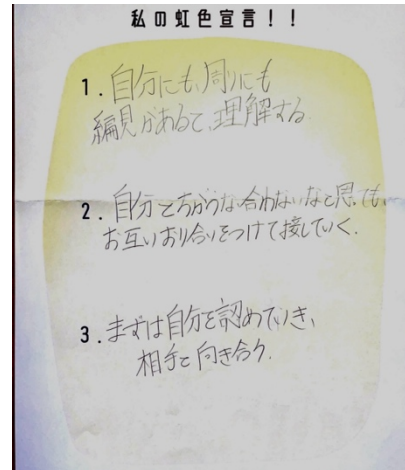 私の虹色宣言!!
1.自分にも、周りにも
編見があるて、理解する
2.自分とちがうな、合わないなと思っても、
お互いおり合いをつけて接していく.
3.まずは自分を認めていき、
相手と向き合う.